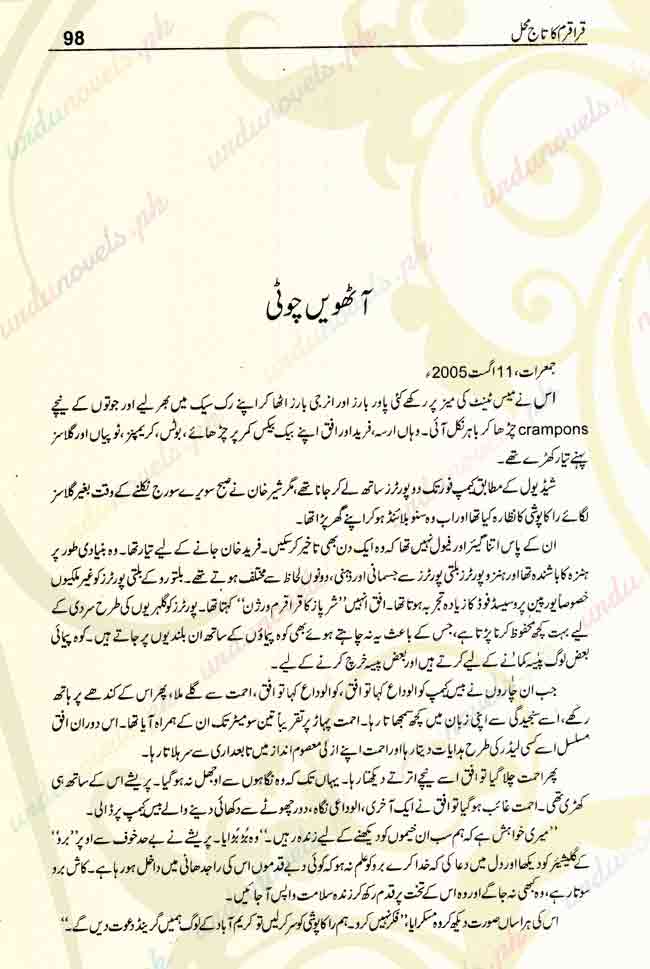 98
قراقرم کا تاج محل
آٹھویں چوٹی
جمعرات، 11 اگست 2005ء
اس نے میس ٹینٹ کی میز پر رکھے کئی پاور بارز اور انرجی بارز اٹھا کر اپنے رک سیک میں بھر لیے اور جوتوں کے نیچے
crampons چڑھا کر باہر نکل آئی۔ وہاں ارسہ، فرید اور افق اپنے بیک پیکس کمر پر چڑھائے، بوٹس، کریمپنز، ٹوپیاں اور گلاسز
پہنے تیار کھڑے تھے۔
شیڈیول کے مطابق کیمپ فور تک دو پورٹرز ساتھ لے کر جانا تھے، مگر شیر خان نے صبح سویرے سورج نکلنے کے وقت بغیر گلاسز
لگائے راکاپوشی کا نظارہ کیا تھا اور اب وہ سنو بلائنڈ ہو کر اپنے گھر پڑا تھا۔
ان کے پاس اتنا گیئر اور فیول نہیں تھا کہ وہ ایک دن بھی تاخیر کر سکیں۔ فرید خان جانے کے لیے تیار تھا۔ وہ بنیادی طور پر
ہنزہ کا باشندہ تھا اور ہنزو پورٹرز بلتی پورٹرز سے جسمانی اور ذہنی، دونوں لحاظ سے مختلف ہوتے تھے۔ بلتورو کے بلتی پورٹرز کو غیر ملکیوں
خصوصاً یورپین پروسیسڈ فوڈ کا زیادہ تجربہ ہوتا تھا۔ افق انہیں ”شرپاز کا قراقرم ورژن“ کہتا تھا۔ پورٹرز کو گلہریوں کی طرح سردی کے
لیے بہت کچھ محفوظ کرنا پڑتا ہے، جس کے باعث یہ نہ چاہتے ہوئے بھی کوہ پیماؤں کے ساتھ ان بلندیوں پر جاتے ہیں۔ کوہ پیمائی
بعض لوگ پیسہ کمانے کے لیے کرتے ہیں اور بعض پیسہ خرچ کرنے کے لیے۔
جب ان چاروں نے بیس کیمپ کو الوداع کہا تو افق، کو الوداع کہا تو افق، احمت سے گلے ملا، پھر اس کے کندھے پر ہاتھ
رکھے، اسے سنجیدگی سے اپنی زبان میں کچھ سمجھاتا رہا۔ احمت پہاڑ پر تقریباً تین سو میٹر تک ان کے ہمراہ آیا تھا۔ اس دوران افق
مسلسل اسے کسی لیڈر کی طرح ہدایات دیتا رہا اور احمت اپنے ازلی معصوم انداز میں تابعداری سے سر ہلاتا رہا۔
پھر احمت چلا گیا تو افق اسے نیچے اترتے دیکھتا رہا۔ یہاں تک کہ وہ نگاہوں سے اوجھل نہ ہو گیا۔ پریشے اس کے ساتھ ہی
کھڑی تھی۔ احمت غائب ہو گیا تو افق نے ایک آخری، الوداعی نگاہ، دور چھوٹے سے دکھائی دینے والے بیس کیمپ پر ڈالی۔
”میری خواہش ہے کہ ہم سب ان خیموں کو دیکھنے کے لیے زندہ رہیں۔“ وہ بڑبڑایا۔ پریشے نے بے حد خوف سے اوپر ”برو“
کے گلیشیئر کو دیکھا اور دل میں دعا کی کہ خدا کرے برو کو علم نہ ہو کہ کوئی دبے قدموں اس کی راجدھانی میں داخل ہو رہا ہے۔ کاش برو
سوتا رہے، وہ کبھی نہ جاگے اور وہ اس کے تخت پر قدم رکھ کر زندہ سلامت واپس آ جائیں۔
اس کی ہراساں صورت دیکھ کر وہ مسکرایا، ”فکر نہیں کرو۔ ہم راکاپوشی کو سر کر لیں تو کریم آباد کے لوگ ہمیں گرینڈ دعوت دیں گے۔“
urdunovels.pk